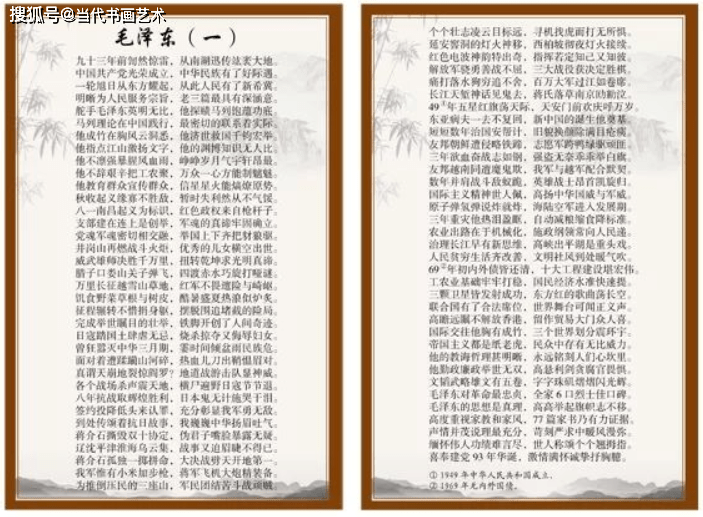 搜狐号@当代书画艺术
毛泽东（一）
九十三年前訇然惊雷，从南湖迅传泫裘大地。
中国共产党光荣成立，中华民族有了好际遇。
一轮旭日从东方耀起，从此人民有了新希冀。
明晰为人民服务宗旨，老三篇最具有深涵意。
舵手毛泽东英明无比，他探碛马列饱蕴功底。
马列理论在中国践行，最密切的联系着实际。
他成竹在胸风云洞悉，他济世救国千钧宏举。
他指点江山激扬文字，他的渊博知识无人比。
他不凛强暴腥风血雨，峥嵘岁月气宇轩昂最。
他不辞艰辛把工农聚，万众一心方能制魑魅。
他教育群众宣传群众，信星星火能熵燎原势。
秋收起义缘寡不胜敌，暂时失利然从不气馁。
八一南昌起义为标识，红色政权来自枪杆子。
支部建在连上是创举，军魂的真谛牢固确立。
党魂军魂密切相交融，举国上下齐把豺狼驱。
井岗山再燃战斗火炬，优秀的儿女横空出世。
威武雄师决胜千万里，扭转乾坤求光明真谛。
腊子口娄山关子弹飞，四渡赤水巧旋打哑谜。
万里长征越雪山草地，红军不畏道险与崎岖。
饥食野菜草根与树皮，酷暑盛夏热浪似炉炙。
征程辗转不惜捐身躯，摆脱围追堵截的险局。
完成举世瞩目的壮举，铁脚开创了人间奇迹。
日寇踏国土肆虐无忌，烧杀掠夺又侮辱妇女。
曾狂嚣灭中华三月期，霎时间倾盆雨民族危。
面对着遭蹂躏山河碎，热血儿刀出鞘恨眉对。
真谓天崩地裂惊阎罗？地道战游击队显神威。
各个战场杀声震天地，横尸遍野日寇节节退。
八年抗战取辉煌胜利，日本鬼无计施哭干泪。
签约投降低头来认罪，充分彰显我军勇无敌。
到处传颂着抗日故事，我巍巍中华扬眉吐气。
蒋介石撕毁双十协定，伪君子嘴脸暴露无疑。
辽沈平津淮海鸟云集，战事又迫眉睫不得已。
蒋介石孤独一掷拼命，大决战劈天开地第一。
我军惟有小米加步枪，蒋军飞机大炮精装备。
为推倒压民的三座山，军民团结苦斗战顽贼。
个个壮志凌云目标远，寻机找虎而打无所惧。
延安窑洞的灯火神移，西柏坡彻夜灯火接续。
红色电波神韵特出奇，指挥若定知己又知彼。
解放军骁勇善战不屈，三大战役获决定胜棋。
痛打落水狗穷追不舍，百万大军过江如卷席。
长江天堑神话见鬼去，蒋氏落草南京呐勒泣。
49①年五星红旗荡天际，天安门前欢庆呼万岁。
东亚病夫一去不复回，新中国的诞生他奠基。
短短数年治国安帮计，旧貌换颜除满目疮痍。
友邦朝鲜遭侵略铁蹄，志愿军跨鸭绿驱顽匪。
三年欲血奋战志如钢，强盗无奈乖乖举白旗。
友邦越南同遭魔鬼欺，我军与越军配合默契。
数年并肩战斗敌蚊跑，英雄战士昂首凯旋归。
国际主义精神世人佩，高扬中华国威与军威。
原子弹氢弹说炸就炸，海陆空军进入发展期。
三年重灾他热泪盈眶，自动减粮缩食降标准。
农业出路在于机械化，施政纲领常向人民递。
治理长江早有新思维，高峡出平湖是重头戏。
人民贫穷生活齐改善，文明社风到处暖气吹。
69②年初内外债皆还清，十大工程建设堪宏伟。
工农业基础牢牢打稳，国民经济水准快速提。
三颗卫星皆发射成功，东方红的歌曲荡长空。
联合国有了合法席位，世界舞台可闻正义声。
高瞻远瞩不解放香港，留作贸易大门众人喜。
国际交往他胸有成竹，三个世界划分震环宇。
帝国主义都是纸老虎，民众中存有无比威力。
他的教诲哲理甚明晰，永远铭刻人们心坎里。
他勤政廉政举世无双，高悬利剑贪腐官畏惧。
文韬武略雄文有五卷，字字珠矶熠熠闪光辉。
毛泽东对革命最忠贞，全家6口烈士佳口碑。
毛泽东的思想是真理，高高举起旗帜志不移。
高度重视家教和家风，77篇家书乃有力证据。
声情并茂说理最充分，苛刻严求中暖风漫弥。
缅怀伟人功绩难言尽，世人称颂个个翘拇指。
喜奉建党93年华诞，激情满怀诚挚抒胸臆。
① 1949年中华人民共和国成立。
② 1969年无内外国债。